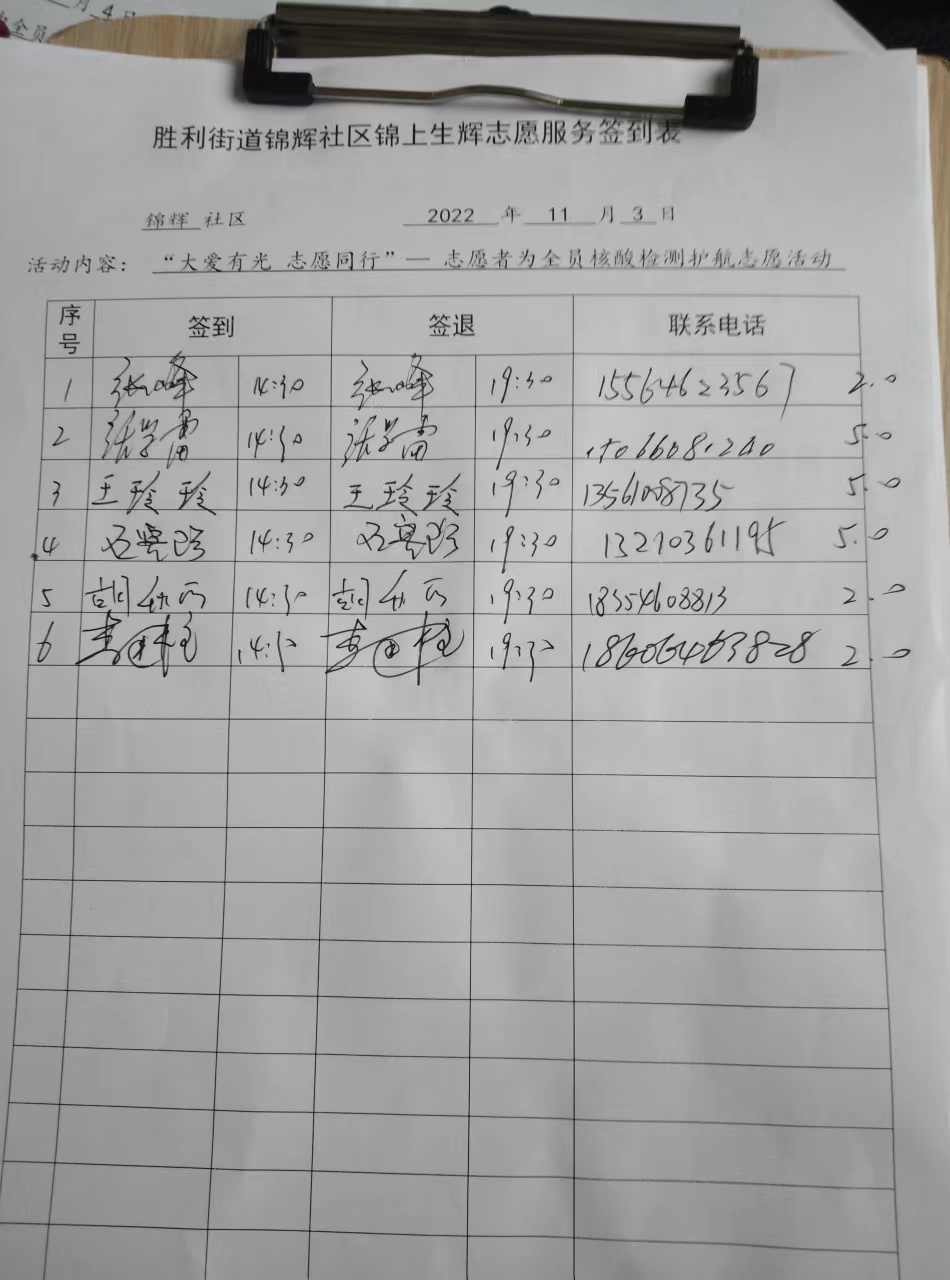 月 4 日
全员
胜利街道锦辉社区锦上生辉志愿服务签到表
锦辉 社区 2022 年 11 月 3 日
活动内容: “大爱有光 志愿同行”— 志愿者为全员核酸检测护航志愿活动
序号 签到 签退 联系电话
1 张峰 14:30 张峰 19:30 15564623567 2.0
2 张学雷 14:30 张学雷 19:30 5.0
3 王玲玲 14:30 王玲玲 19:30 13561008735 5.0
4 14:30 19:30 13210361195 5.0
5 14:30 19:30 18354608813 2.0
6 14:30 19:30 2.0